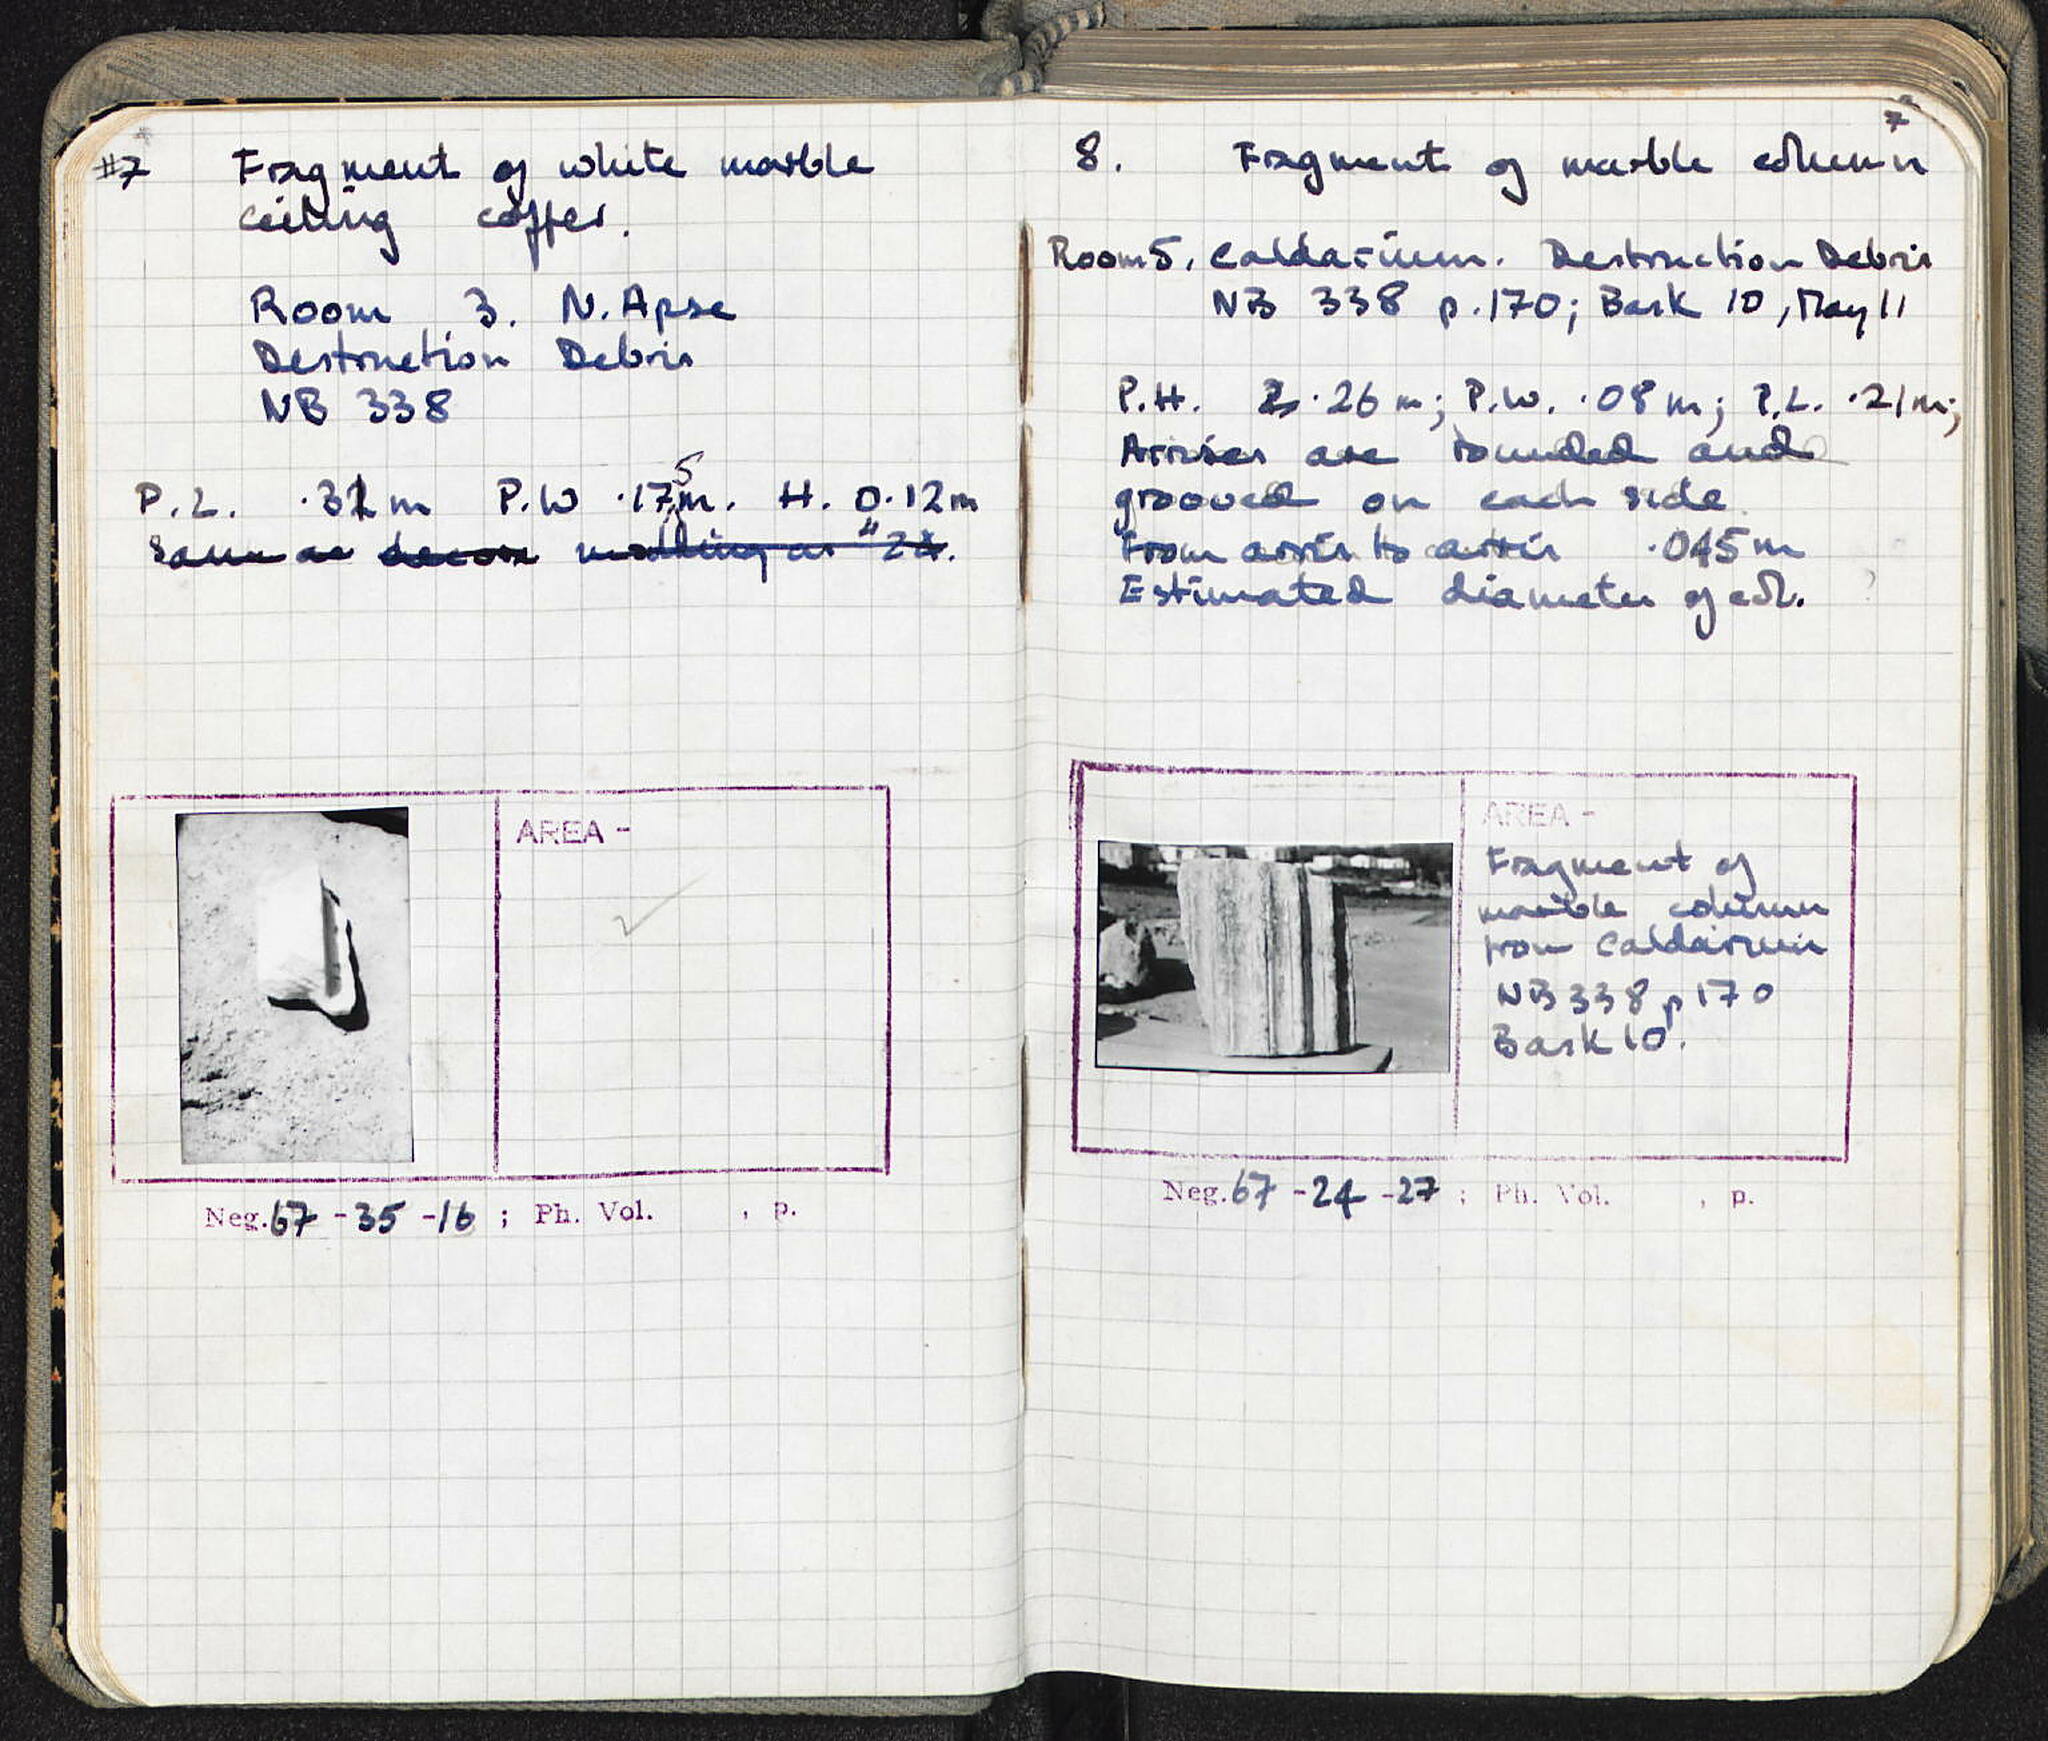 #7 Fragment of white marble
ceiling coffer.
Room 3. N. Apse
Destruction Debris
NB 338
P.L. .31m P.W .175m. H. 0.12m
Same as decor molding as #28.
AREA -
Neg. 67 - 35 - 16 ; Ph. Vol. , p.
7
8. Fragment of marble column
Room 5, Caldarium. Destruction Debris
NB 338 p.170; Bask 10, May 11
P.H. .26 m; P.W. .08 m; P.L. .21m;
Arrises are rounded and
grooved on each side.
From arris to arris .045m
Estimated diameter of col. ?
AREA -
Fragment of
marble column
from Caldarium
NB 338 p 170
Bask 10.
Neg. 67 - 24 - 27 ; Ph. Vol. , p.